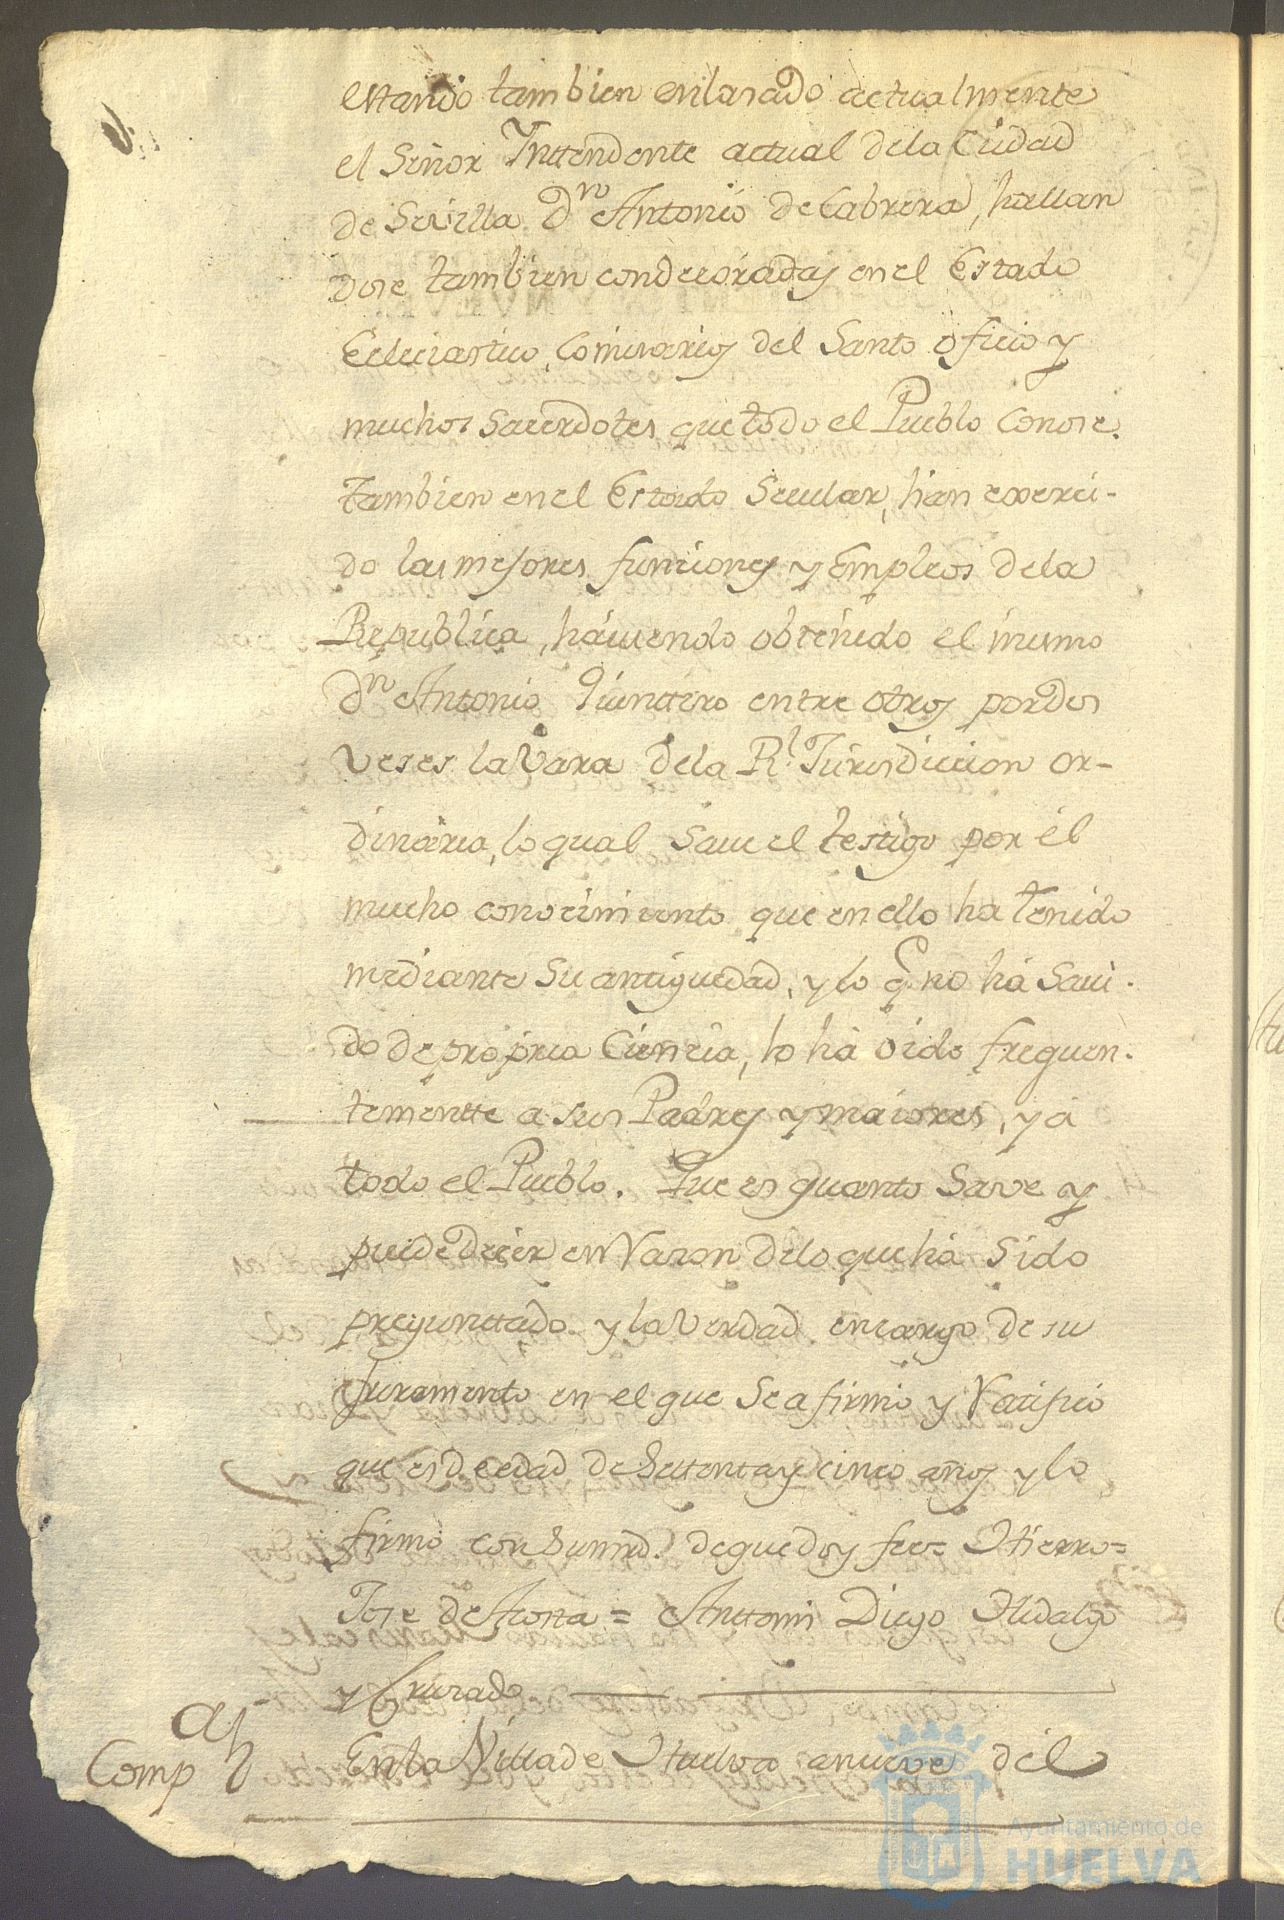 estando tambien enlasado actualmente
el Señor Inttendente actual dela Ciudad
de Sevilla Dn Antonio de Cabrera, hallan
dose tambien condecoradas en el Estado
Ecleciastico, Comisarios del Santo oficio y
muchos Sacerdotes que todo el Pueblo Conose.
tambien en el Estado Secular, han exerci-
do las mejores funciones y Empleos de la
Republica, haviendo obtenido el mismo
Dn Antonio Quinttero entre otros por dos
veses la Vara dela Rl. Jurisdiccion or-
dinaria, lo qual save el testigo por el
mucho conocimiento que en ello ha tenido
mediante su antiguedad, y lo q no há savi-
do de propria Ciencia, lo há oido frequen-
tementte a sus Padres y maiores, y à
todo el Pueblo. Que es quanto Save y
puede decir en Razon delo que há sido
pregunttado y la Verdad encargo de su
Juramento en el que Se afirmó y Ratificó
que es de edad de Settenta y cinco años y lo
firmó con Su md. de que doy fee = Hierro =
Jose de Acosta = Anttonio Diego Hidalgo
y Cruzado
Comp
En la Villa de Huelva a nueve del
Ayuntamiento de
HUELVA